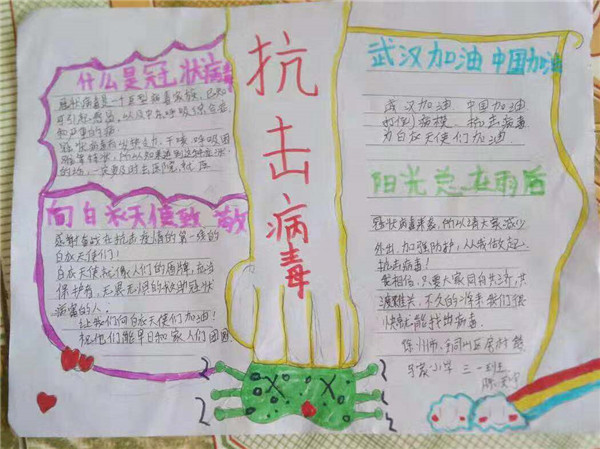 什么是冠状病毒
冠状病毒是一个大型病毒家族，已知
可引起感冒，以及中东呼吸综合征
和严重的病
冠状病毒有发热乏力、干咳、呼吸困
难等特状，所以如果遇到这种症状
的话，一定要及时去医院就医
向白衣天使致敬
感谢奋战在抗击疫情的第一线的
白衣天使们！
白衣天使就像人们的盾牌，
保护着，无畏无惧的救助冠状
病毒的人。
让我们向白衣天使们加油！
祝他们能早日和家人们团圆
抗击病毒
武汉加油 中国加油
武汉加油 中国加油
打倒病魔、抗击病毒
为白衣天使们加油
阳光总在雨后
冠状病毒来袭，所以请大家减少
外出，加强防护，从我做起、
抗击病毒！
我相信，只要大家同舟共济，共
渡难关，不久的将来我们很
快就能找出病毒.
徐州市、铜山区
小学 三一班